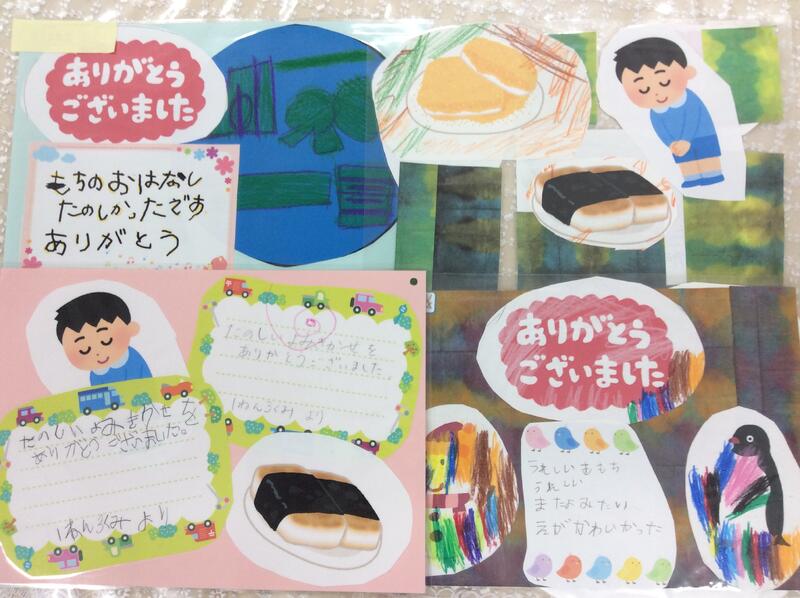 ありがとう
ございました
もちのおはなし
たのしかったです
ありがとう
たのしいよみきかせを
ありがとうございました。
1ねん6くみ より
たのしいよみきかせを
ありがとうございました。
1ねん6くみ より
ありがとう
ございました
うれしい
またよみたい
えがかわいかった